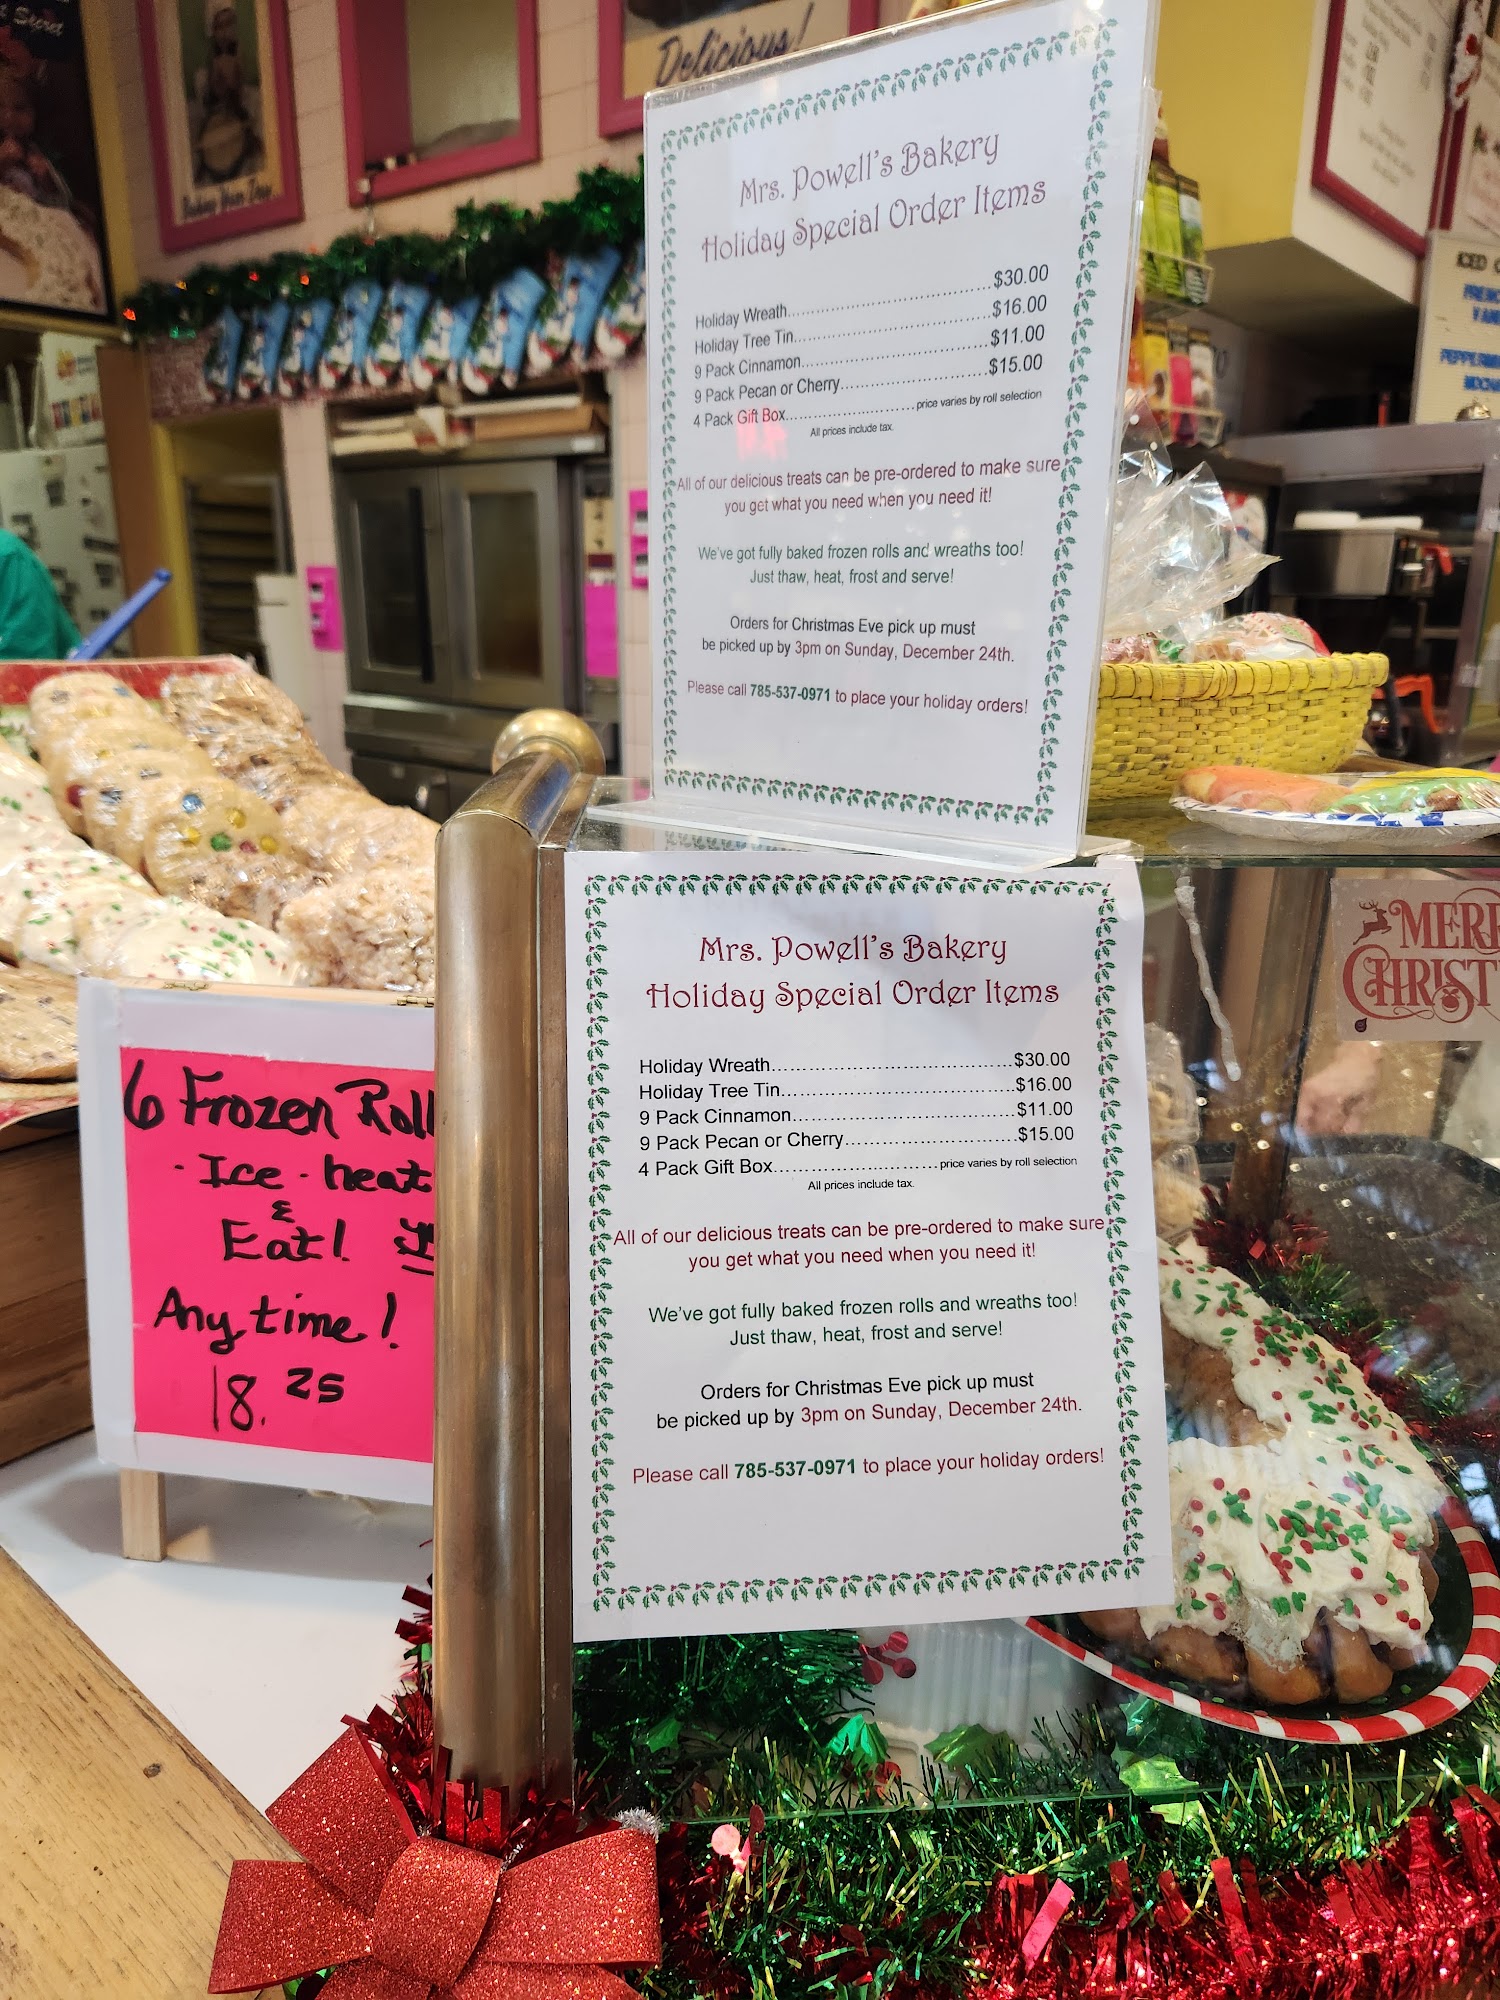 Secret
Delicious!
Mrs. Powell's Bakery
Holiday Special Order Items
Holiday Wreath..................$30.00
Holiday Tree Tin..................$16.00
9 Pack Cinnamon..................$11.00
9 Pack Pecan or Cherry..................$15.00
4 Pack Gift Box..................price varies by roll selection
All prices include tax.
All of our delicious treats can be pre-ordered to make sure
you get what you need when you need it!
We've got fully baked frozen rolls and wreaths too!
Just thaw, heat, frost and serve!
Orders for Christmas Eve pick up must
be picked up by 3pm on Sunday, December 24th.
Please call 785-537-0971 to place your holiday orders!
Mrs. Powell's Bakery
Holiday Special Order Items
Holiday Wreath..................$30.00
Holiday Tree Tin..................$16.00
9 Pack Cinnamon..................$11.00
9 Pack Pecan or Cherry..................$15.00
4 Pack Gift Box..................price varies by roll selection
All prices include tax.
All of our delicious treats can be pre-ordered to make sure
you get what you need when you need it!
We've got fully baked frozen rolls and wreaths too!
Just thaw, heat, frost and serve!
Orders for Christmas Eve pick up must
be picked up by 3pm on Sunday, December 24th.
Please call 785-537-0971 to place your holiday orders!
6 Frozen Roll
· Ice · heat
&
Eat!
Any time!
18.25
ICED
PEPPERMI
MERR
CHRIST